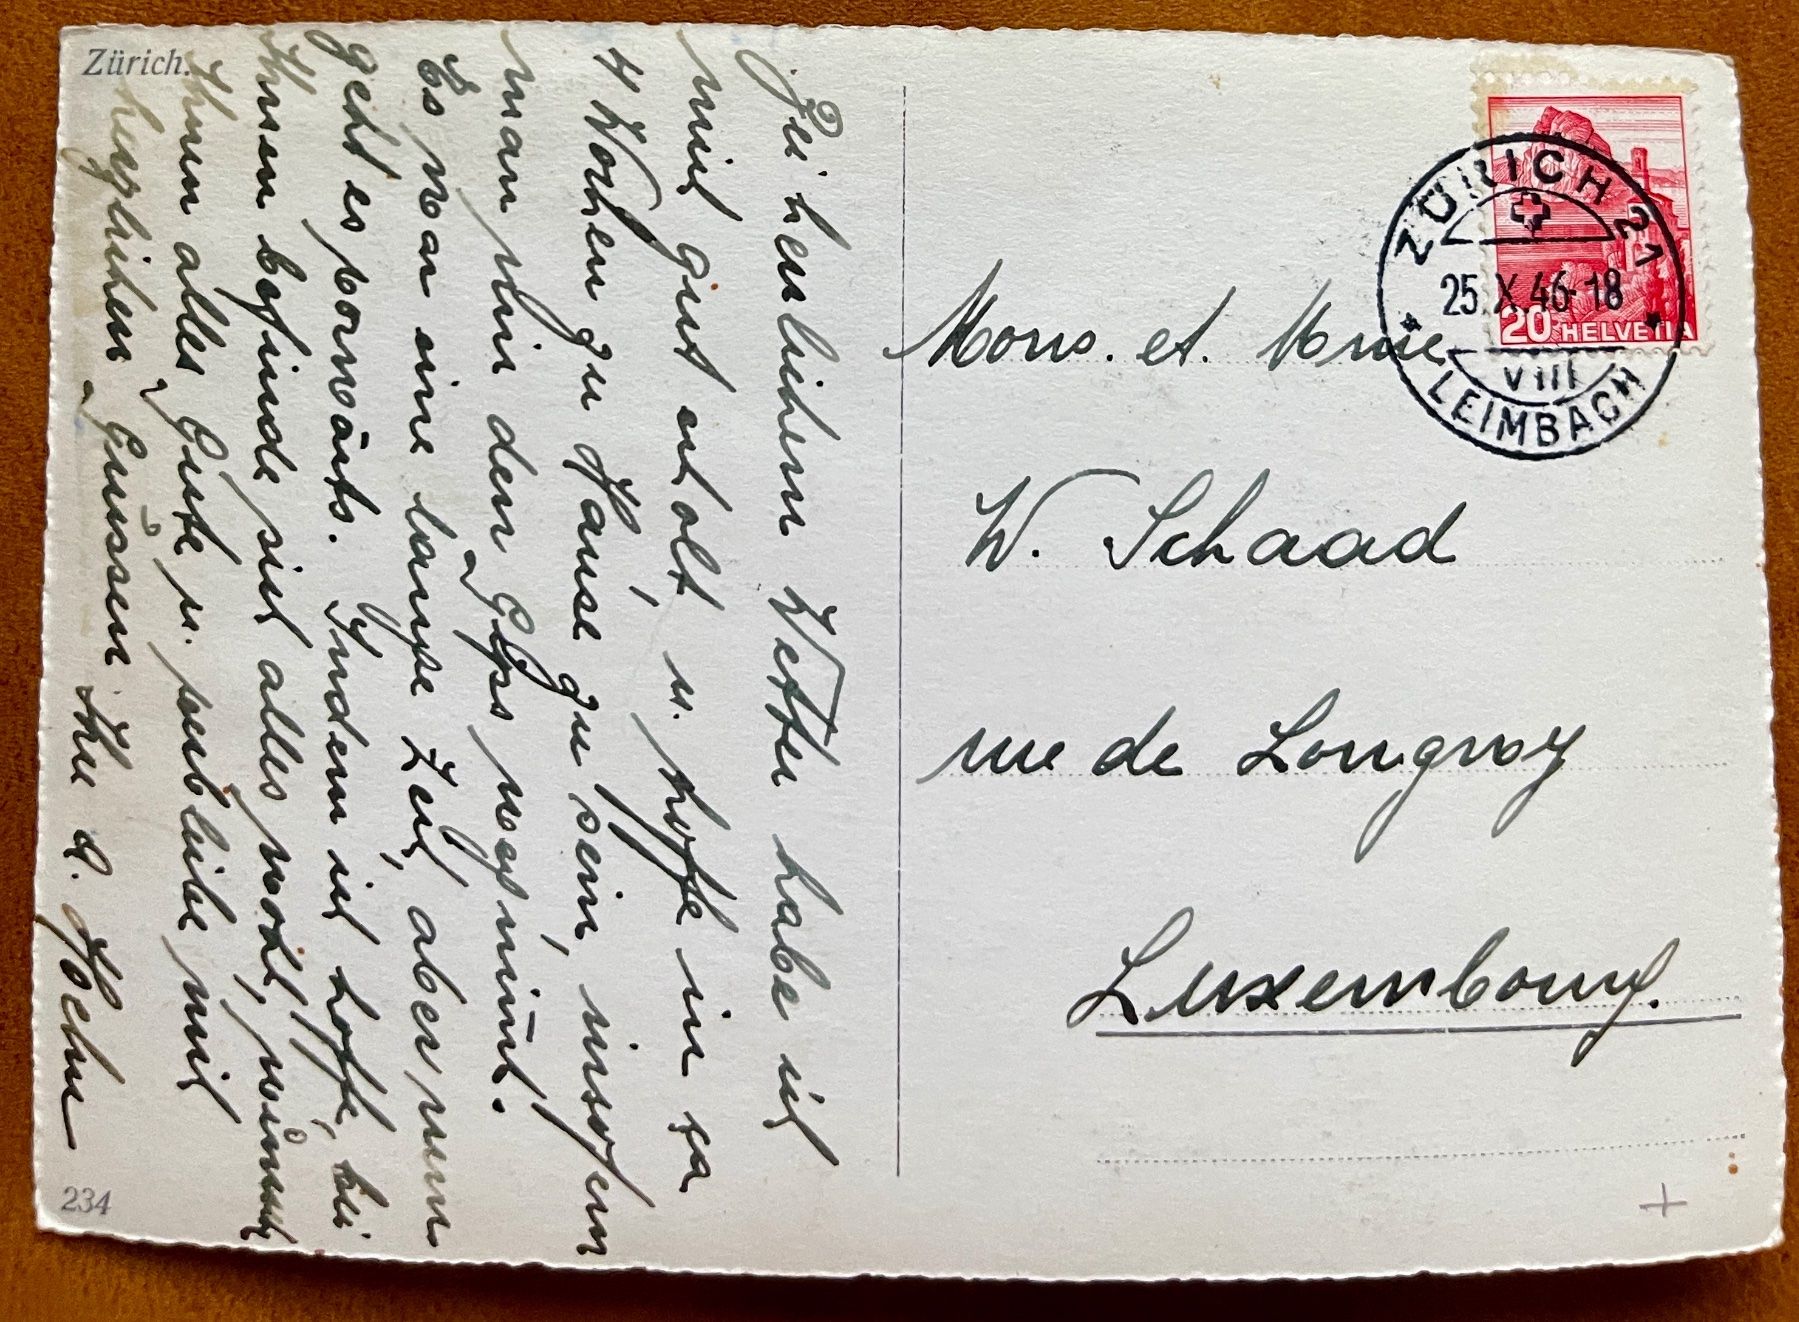 Zürich.
Bei herrlichem Wetter habe ich
mich gut erholt u. hoffe in ca
4 Wochen zu Hause zu sein, insofern
man mir den Gips wegnimt.
Es war eine lange Zeit, aber nun
geht es vorwärts. Indem ich hoffe, bei
Ihnen befinde sich alles wohl, wünsch
Ihnen alles Gute u. verbleibe mit
herzlichen Grüssen Ihr A. Hehn
234
ZÜRICH 21
25.X.46-18
VIII
LEIMBACH
20 HELVETIA
Mons. et. Mme
W. Schaad
rue de Longwy
Luxembourg.